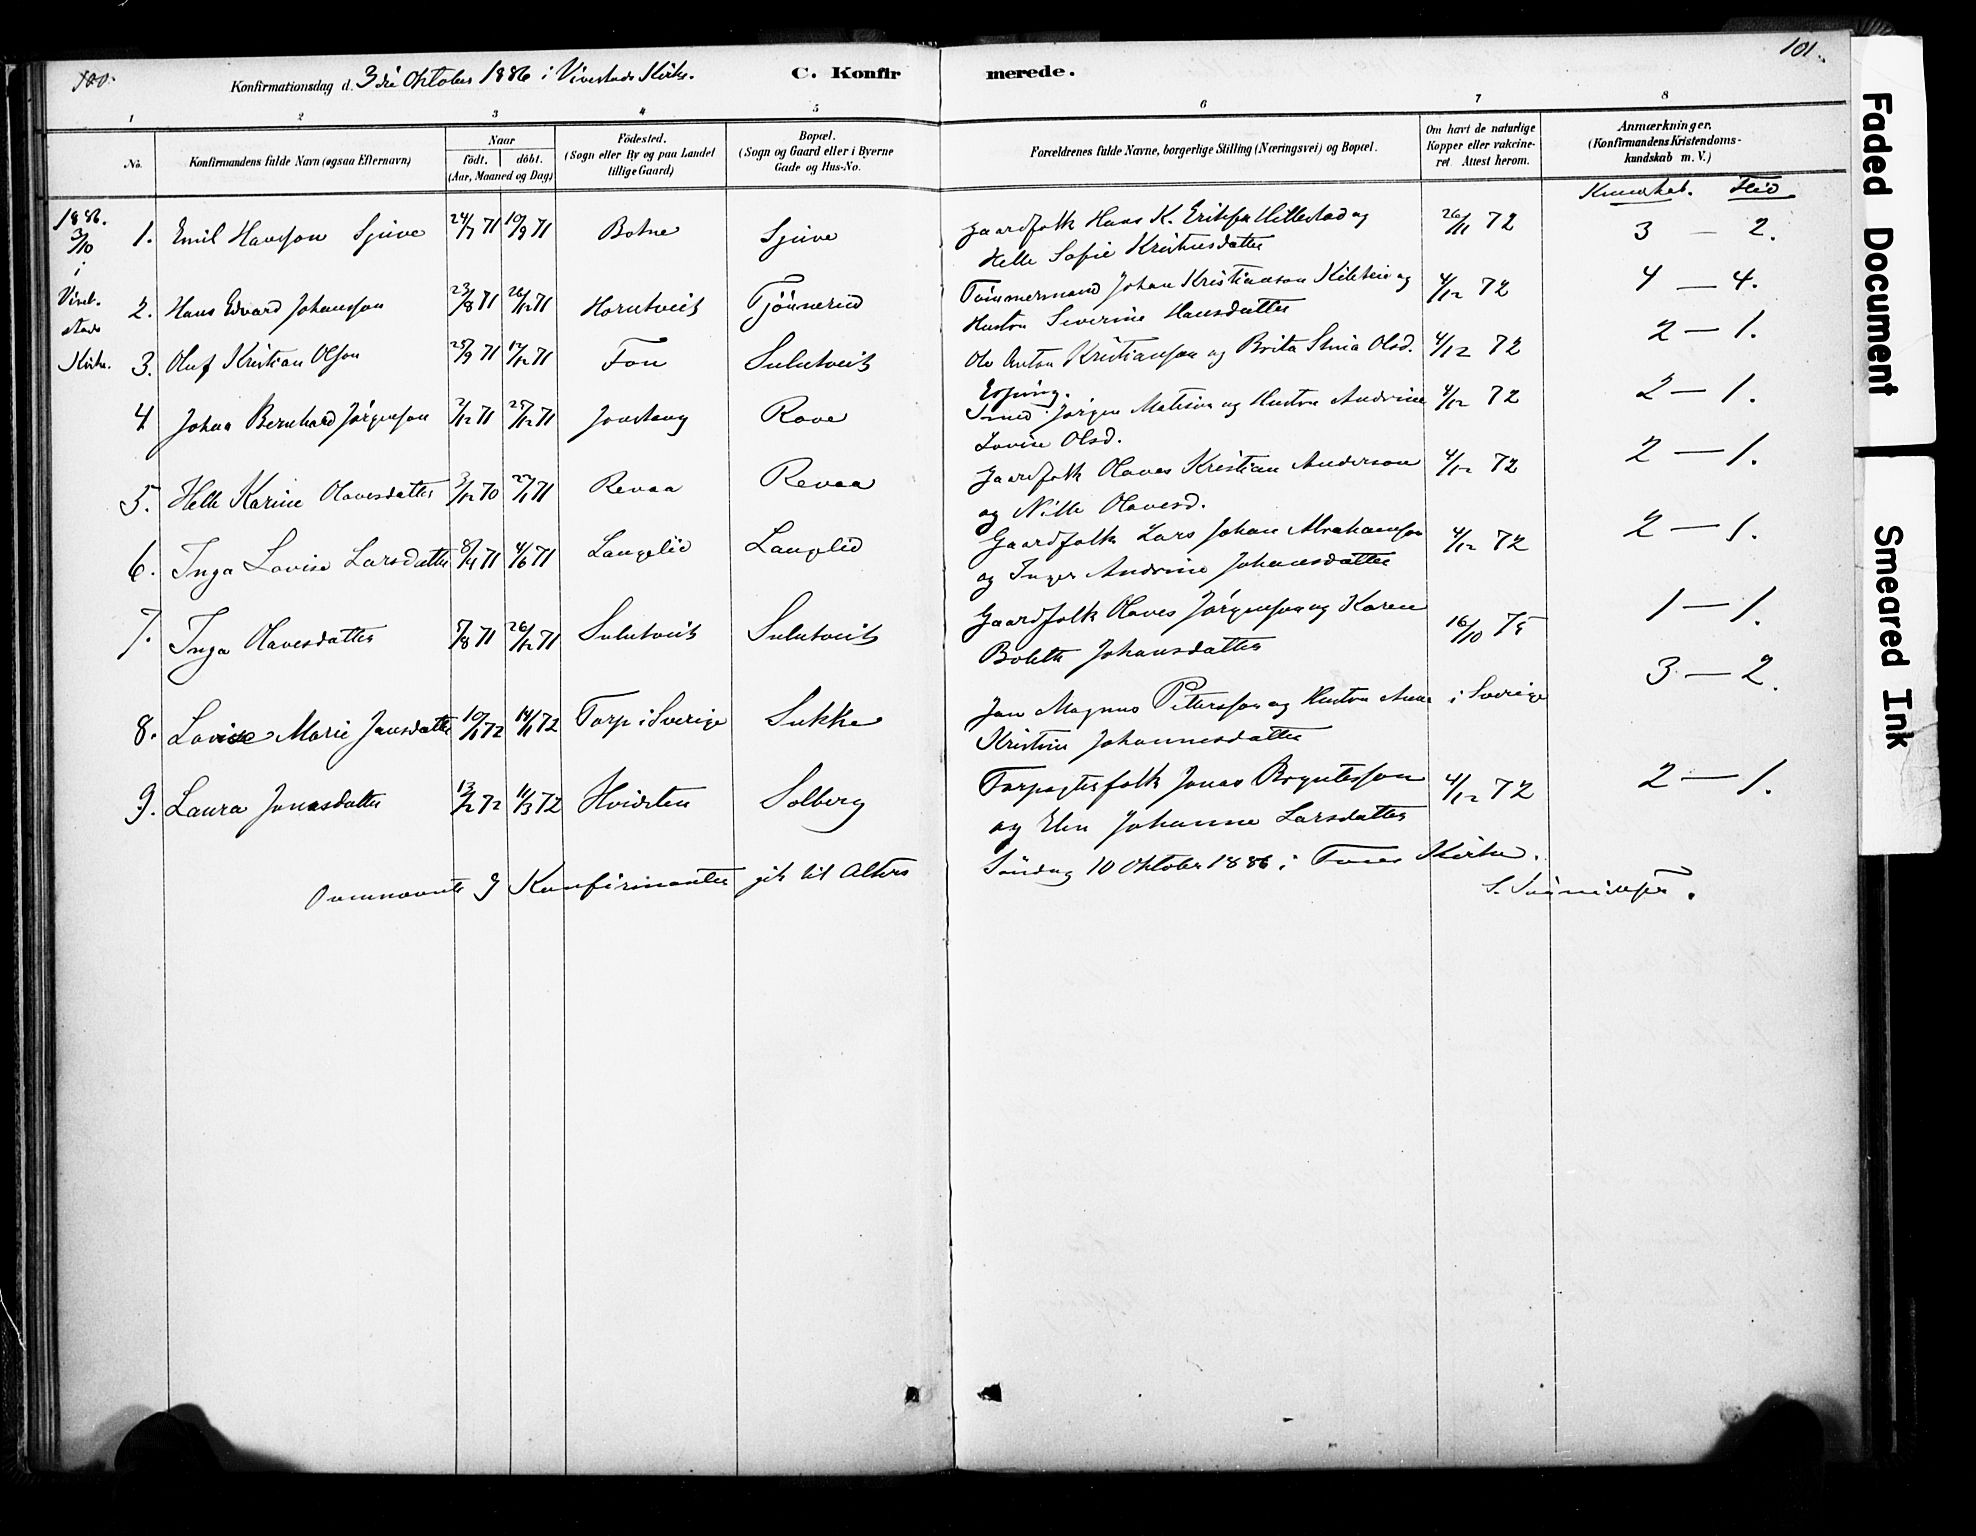 100.
101.
Konfirmationsdag d. 3die Oktober 1886 i Vivestads Kirke.
C. Konfirmerede.
1 2 3 4 5 6 7 8
No.
Konfirmandens fulde Navn (ogsaa Efternavn)
Naar
født. døbt.
(Aar, Maaned og Dag)
Fødested.
(Sogn eller By og paa Landet
tillige Gaard)
Bopæl.
(Sogn og Gaard eller i Byerne
Gade og Hus-No.
Forældrenes fulde Navne, borgerlige Stilling (Næringsvei) og Bopæl.
Om havt de naturlige
Kopper eller vaccine-
ret. Attest herom.
Anmærkninger.
(Konfirmandens Kristendoms-
kundskab m. V.)
Kundskab. Flid
1886.
3/10
i
Vive-
stads
Kirke.
1. Emil Hansson Sjuve 24/7 71 10/9 71 Botne Sjuve Gaardfolk Hans K. Eriksen Hillestad og 26/11 72 3 — 2.
Helle Sofie Kristensdatter
2. Hans Edvard Johansson 23/8 71 26/12 71 Horntveit Tjønnerud Tømmermand Johan Kristianson og 4/12 72 4 — 4.
Hustru Severine Hansdatter
3. Oluf Kristian Olson 25/9 71 17/12 71 Fon Sulutveit Ole Anton Kristianson og Brita Olsd. 4/12 72 2 — 1.
4 Johan Bernhard Jørgenson 2/12 71 25/12 71 Rove Smed Jørgen og Hustru Andrine 4/12 72 2 — 1.
Lovise Olsd.
5. Helle Karine Olavesdatter 3/12 70 27/1 71 Revaa Revaa Gaardfolk Olaves Kristian Anderson 4/12 72 2 — 1.
og Nille Olavesd.
6. Inga Lovise Larsdatter 8/4 71 4/6 71 Langelid Langelid Gaardfolk Lars Johan Abrahamson 4/12 72 2 — 1.
og Inger Andrine Johansdatter
7. Inga Olavesdatter 7/8 71 26/12 71 Sulutveit Sulutveit Gaardfolk Olaves Jørgenson og Karen 16/10 75 1 — 1.
Bolette Johansdatter
8. Lovise Marie Jansdatter 10/1 72 14/1 72 Torp i Sverige Sukke Jan Magnus Petersson og Hustru Anna i Sverige 3 — 2.
Kristine Johannesdatter
9. Laura Jonasdatter 13/2 72 11/3 72 Hvidsten Solberg Forpagterfolk Jonas Bryntesson 4/12 72 2 — 1.
og Elen Johanne Larsdatter
Ovennævnte 9 Konfirmanter gik til Alters Søndag 10 Oktober 1886 i Fons Kirke.
Faded Document
Smeared Ink